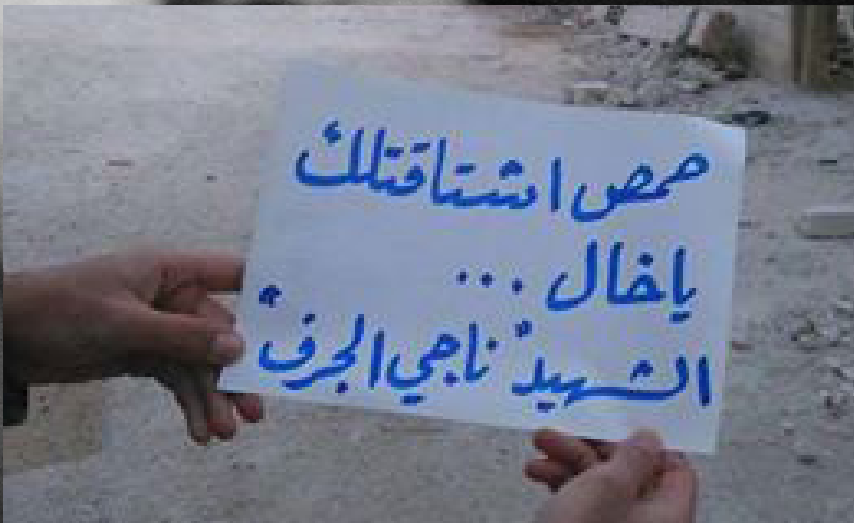 حمص اشتاقتلك
ياخال ...
الشهيد" ناجي الجرف"